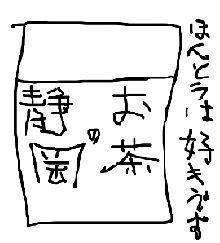 ほんとうは好きです
お茶
の
静岡